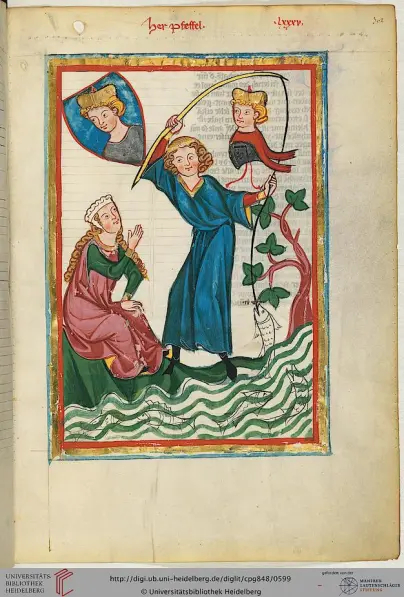 her Pfeffel. .lxxxv. 302
UNIVERSITÄTS-
BIBLIOTHEK
HEIDELBERG
http://digi.ub.uni-heidelberg.de/diglit/cpg848/0599
© Universitätsbibliothek Heidelberg
gefördert von der
MANFRED
LAUTENSCHLÄGER
STIFTUNG